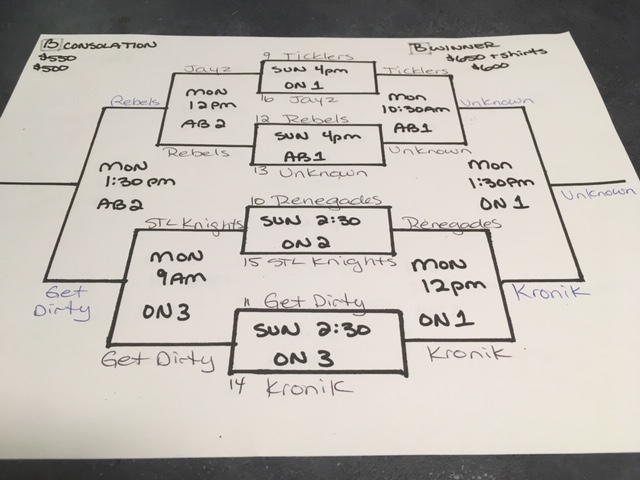 B CONSOLATION
$550
$500
B WINNER
$650 + shirts
$600
9 Ticklers
SUN 4pm
ON 1
16 Jayz
12 Rebels
SUN 4pm
AB1
13 Unknown
10 Renegades
SUN 2:30
ON 2
15 STL Knights
11 Get Dirty
SUN 2:30
ON 3
14 Kronik
Jayz
MON
12pm
AB2
Rebels
STL Knights
MON
9AM
ON3
Get Dirty
Rebels
MON
1:30pm
AB2
Get
Dirty
Ticklers
MON
10:30AM
AB1
Unknown
Renegades
MON
12pm
ON1
Kronik
Unknown
MON
1:30pm
ON 1
Kronik
Unknown